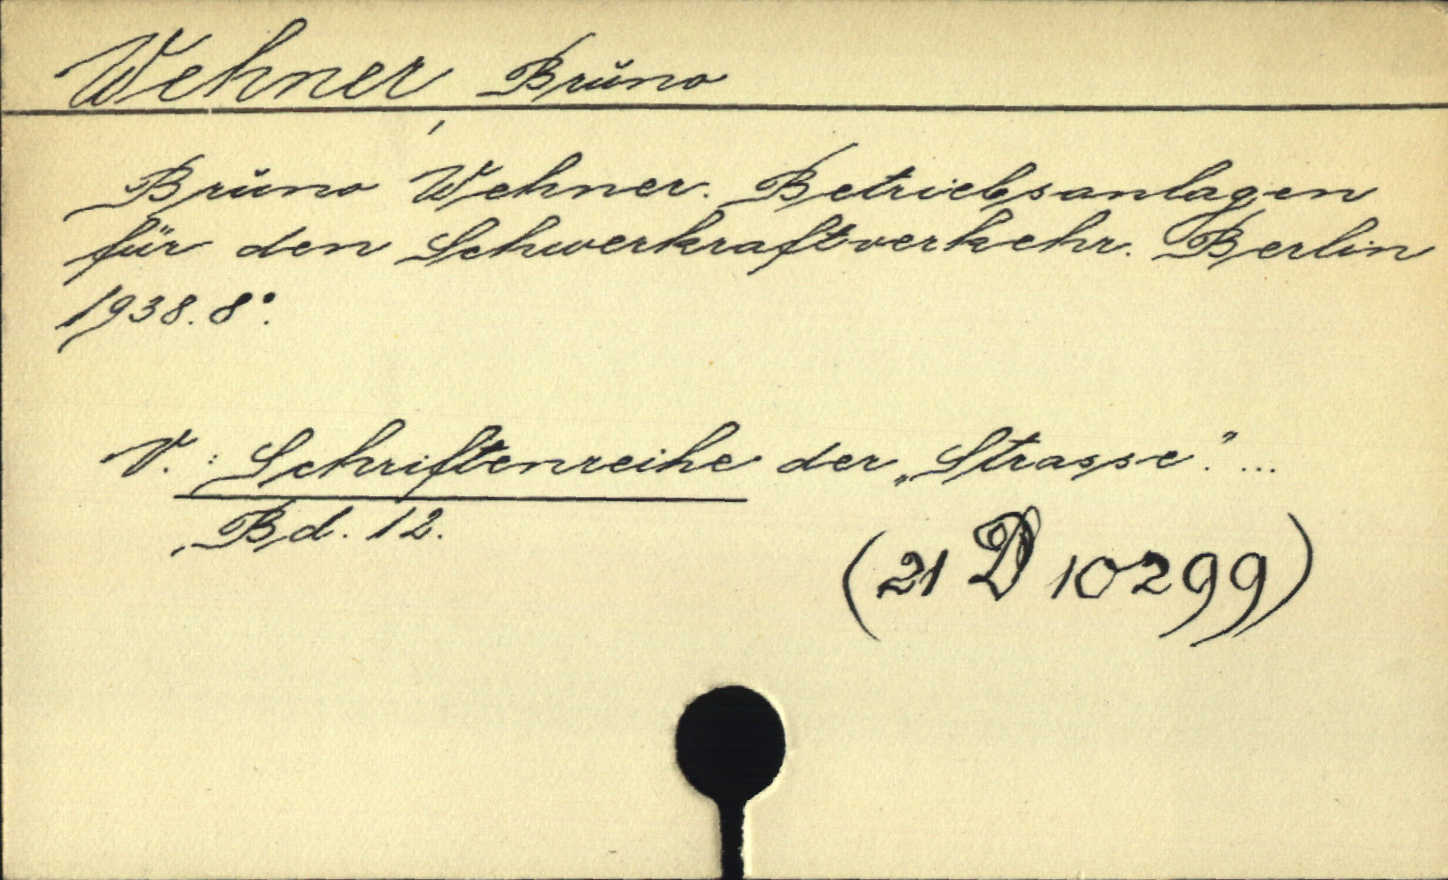 Wehner Bruno
Bruno Wehner. Betriebsanlagen
für den Schwerkraftverkehr. Berlin
1938. 8°.
V.: Schriftenreihe der „Strasse“. ...
Bd. 12.
(21 D 10299)